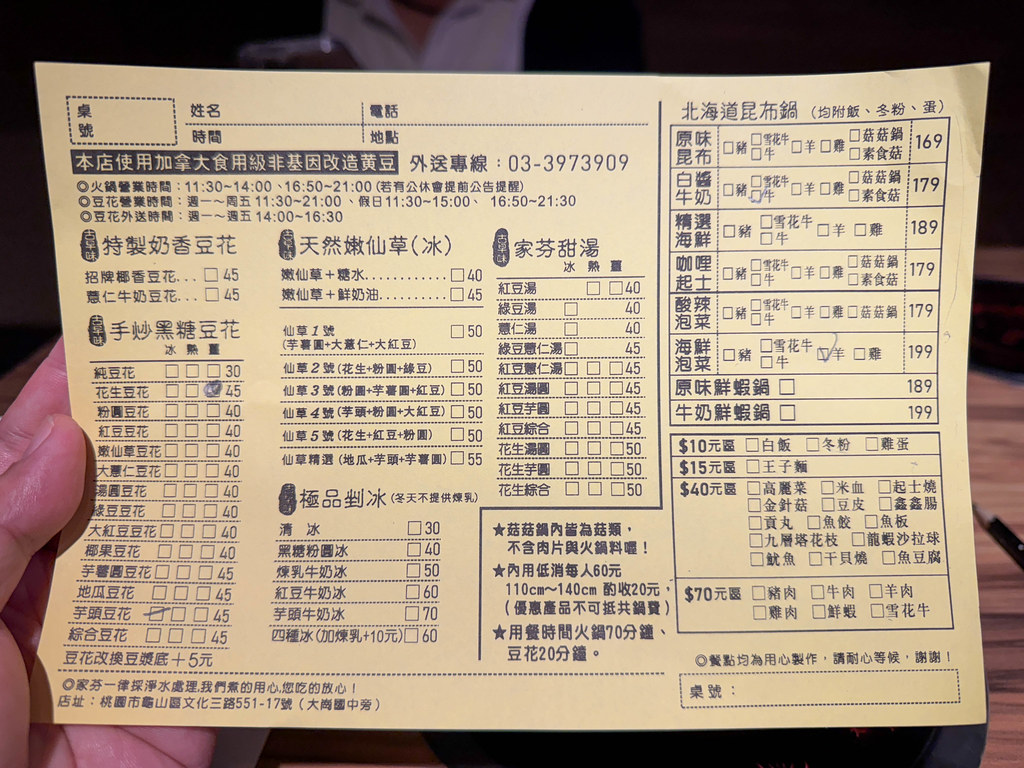 桌號
姓名
電話
時間
地點
本店使用加拿大食用級非基因改造黃豆 外送專線：03-3973909
◎火鍋營業時間：11:30~14:00、16:50~21:00(若有公休會提前公告提醒)
◎豆花營業時間：週一～周五11:30~21:00、假日11:30~15:00、 16:50~21:30
◎豆花外送時間：週一～週五14:00~16:30
古早味 特製奶香豆花
招牌椰香豆花... □ 45
薏仁牛奶豆花... □ 45
古早味 手炒黑糖豆花
冰 熱 薑
純豆花 □ □ □ 30
花生豆花 □ □ □ 45
粉圓豆花 □ □ □ 40
紅豆豆花 □ □ □ 40
嫩仙草豆花 □ □ □ 40
大薏仁豆花 □ □ □ 40
湯圓豆花 □ □ □ 40
綠豆豆花 □ □ □ 40
大紅豆豆花 □ □ □ 40
椰果豆花 □ □ □ 40
芋薯圓豆花 □ □ □ 45
地瓜豆花 □ □ □ 45
芋頭豆花 □ □ □ 45
綜合豆花 □ □ □ 45
豆花改換豆漿底＋5元
古早味 天然嫩仙草(冰)
嫩仙草＋糖水.......... □ 40
嫩仙草＋鮮奶油.......... □ 45
仙草1號 □ 50
(芋薯圓+大薏仁+大紅豆)
仙草2號(花生+粉圓+綠豆) □ 50
仙草3號(粉圓+芋薯圓+紅豆) □ 50
仙草4號(芋頭+粉圓+大紅豆) □ 50
仙草5號(花生+紅豆+粉圓) □ 50
仙草精選(地瓜+芋頭+芋薯圓) □ 55
古早味 極品剉冰(冬天不提供煉乳)
清 冰 □ 30
黑糖粉圓冰 □ 40
煉乳牛奶冰 □ 50
紅豆牛奶冰 □ 60
芋頭牛奶冰 □ 70
四種冰(加煉乳+10元) □ 60
古早味 家芬甜湯
冰 熱 薑
紅豆湯 □ □ 40
綠豆湯 □ 40
薏仁湯 □ 40
綠豆薏仁湯 □ 45
紅豆薏仁湯 □ □ □ 45
紅豆湯圓 □ □ □ 45
紅豆芋圓 □ □ □ 45
紅豆綜合 □ □ □ 45
花生湯圓 □ □ □ 50
花生芋圓 □ □ □ 50
花生綜合 □ □ □ 50
★菇菇鍋內皆為菇類，
不含肉片與火鍋料喔！
★內用低消每人60元
110cm～140cm 酌收20元，
(優惠產品不可抵共鍋費)
★用餐時間火鍋70分鐘、
豆花20分鐘。
北海道昆布鍋 (均附飯、冬粉、蛋)
原味昆布 □豬 □雪花牛 □牛 □羊 □雞 □菇菇鍋 □素食菇 169
白醬牛奶 □豬 □雪花牛 □牛 □羊 □雞 □菇菇鍋 □素食菇 179
精選海鮮 □豬 □雪花牛 □牛 □羊 □雞 189
咖哩起士 □豬 □雪花牛 □牛 □羊 □雞 □菇菇鍋 □素食菇 179
酸辣泡菜 □豬 □雪花牛 □牛 □羊 □雞 □菇菇鍋 179
海鮮泡菜 □豬 □雪花牛 □牛 □羊 □雞 199
原味鮮蝦鍋 □ 189
牛奶鮮蝦鍋 □ 199
$10元區 □白飯 □冬粉 □雞蛋
$15元區 □王子麵
$40元區 □高麗菜 □米血 □起士燒
□金針菇 □豆皮 □鑫鑫腸
□貢丸 □魚餃 □魚板
□九層塔花枝 □龍蝦沙拉球
□魷魚 □干貝燒 □魚豆腐
$70元區 □豬肉 □牛肉 □羊肉
□雞肉 □鮮蝦 □雪花牛
◎餐點均為用心製作，請耐心等候，謝謝！
桌號：
◎家芬一律採淨水處理,我們煮的用心,您吃的放心！
店址：桃園市龜山區文化三路551-17號（大崗國中旁）